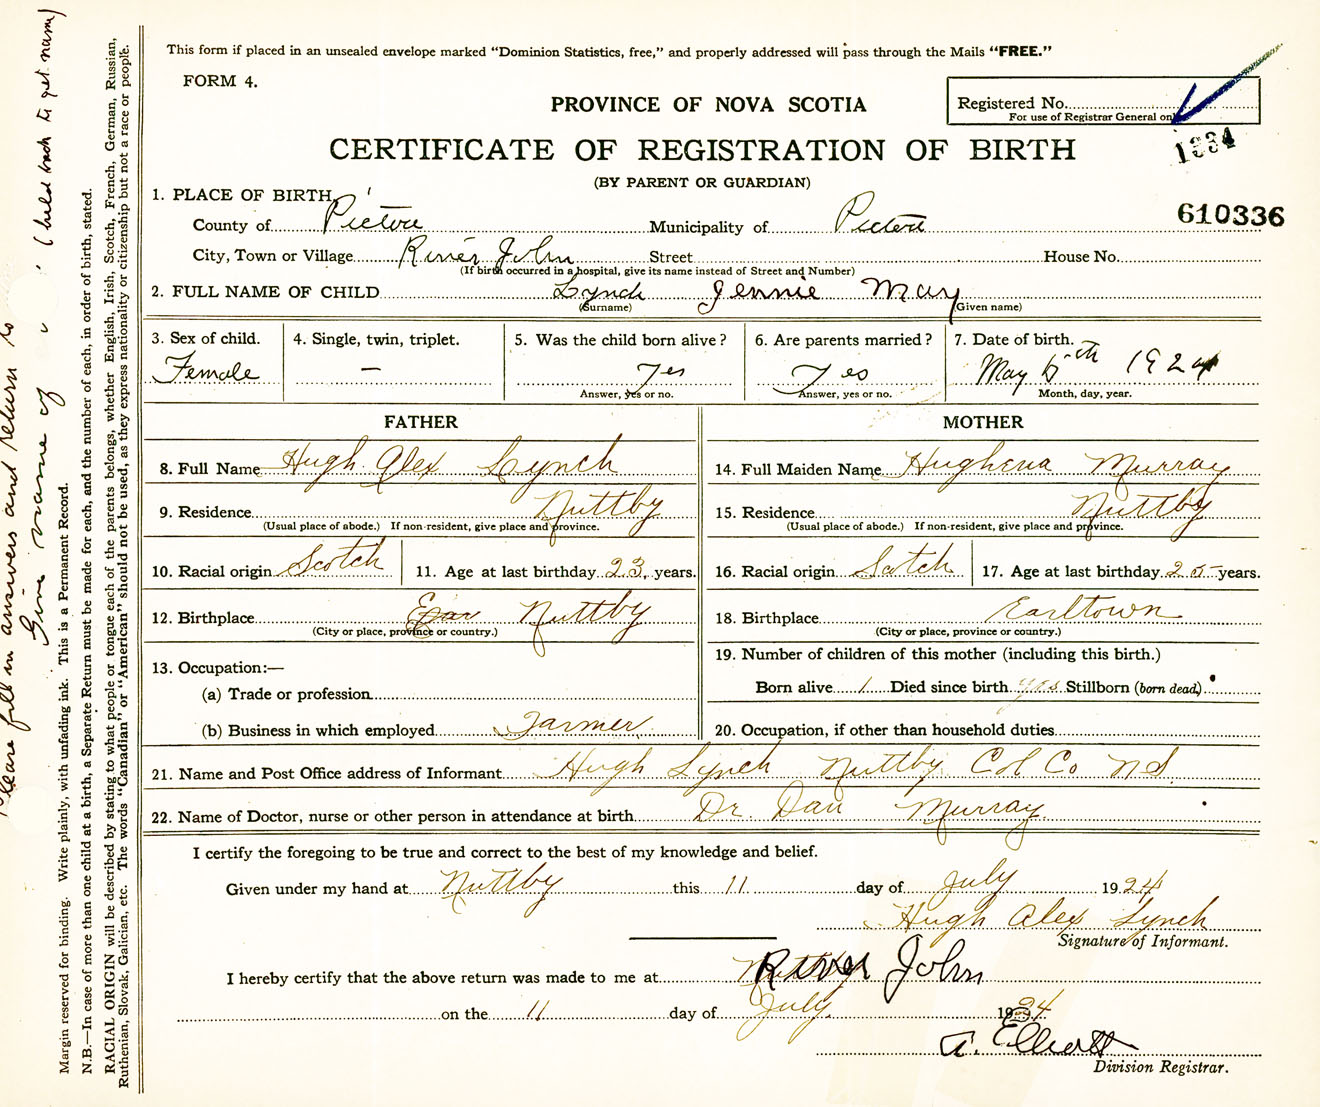 This form if placed in an unsealed envelope marked "Dominion Statistics, free," and properly addressed will pass through the Mails "FREE."
FORM 4.
PROVINCE OF NOVA SCOTIA
Registered No.
For use of Registrar General only
CERTIFICATE OF REGISTRATION OF BIRTH
1334
(BY PARENT OR GUARDIAN)
610336
1. PLACE OF BIRTH,
County of Pictou Municipality of Pictou
City, Town or Village River John Street House No.
(If birth occurred in a hospital, give its name instead of Street and Number)
2. FULL NAME OF CHILD Lynch Jennie May
(Surname) (Given name)
3. Sex of child. 4. Single, twin, triplet. 5. Was the child born alive? 6. Are parents married? 7. Date of birth.
Female — Yes Yes May 6th 1924
Answer, yes or no. Answer, yes or no. Month, day, year.
FATHER MOTHER
8. Full Name Hugh Alex Lynch 14. Full Maiden Name Hughena Murray
9. Residence Nuttby 15. Residence Nuttby
(Usual place of abode.) If non-resident, give place and province. (Usual place of abode.) If non-resident, give place and province.
10. Racial origin Scotch 11. Age at last birthday 23 years. 16. Racial origin Scotch 17. Age at last birthday 25 years.
12. Birthplace Ear Nuttby 18. Birthplace Earltown
(City or place, province or country.) (City or place, province or country.)
13. Occupation:— 19. Number of children of this mother (including this birth.)
(a) Trade or profession Born alive 1 Died since birth yes Stillborn (born dead)
(b) Business in which employed Farmer 20. Occupation, if other than household duties
21. Name and Post Office address of Informant Hugh Lynch Nuttby Col Co N S
22. Name of Doctor, nurse or other person in attendance at birth Dr. Dan Murray
I certify the foregoing to be true and correct to the best of my knowledge and belief.
Given under my hand at Nuttby this 11 day of July 1924
Hugh Alex Lynch
Signature of Informant.
I hereby certify that the above return was made to me at Nuttby River John
on the 11 day of July 1924
A. Elliott
Division Registrar.
Please fill in answers and return to
Give name of (held back to get name)
Margin reserved for binding. Write plainly, with unfading ink. This is a Permanent Record.
N.B.—In case of more than one child at a birth, a Separate Return must be made for each, and the number of each, in order of birth, stated.
RACIAL ORIGIN will be described by stating to what people or tongue each of the parents belongs, whether English, Irish, Scotch, French, German, Russian,
Ruthenian, Slovak, Galician, etc. The words "Canadian" or "American" should not be used, as they express nationality or citizenship but not a race or people.